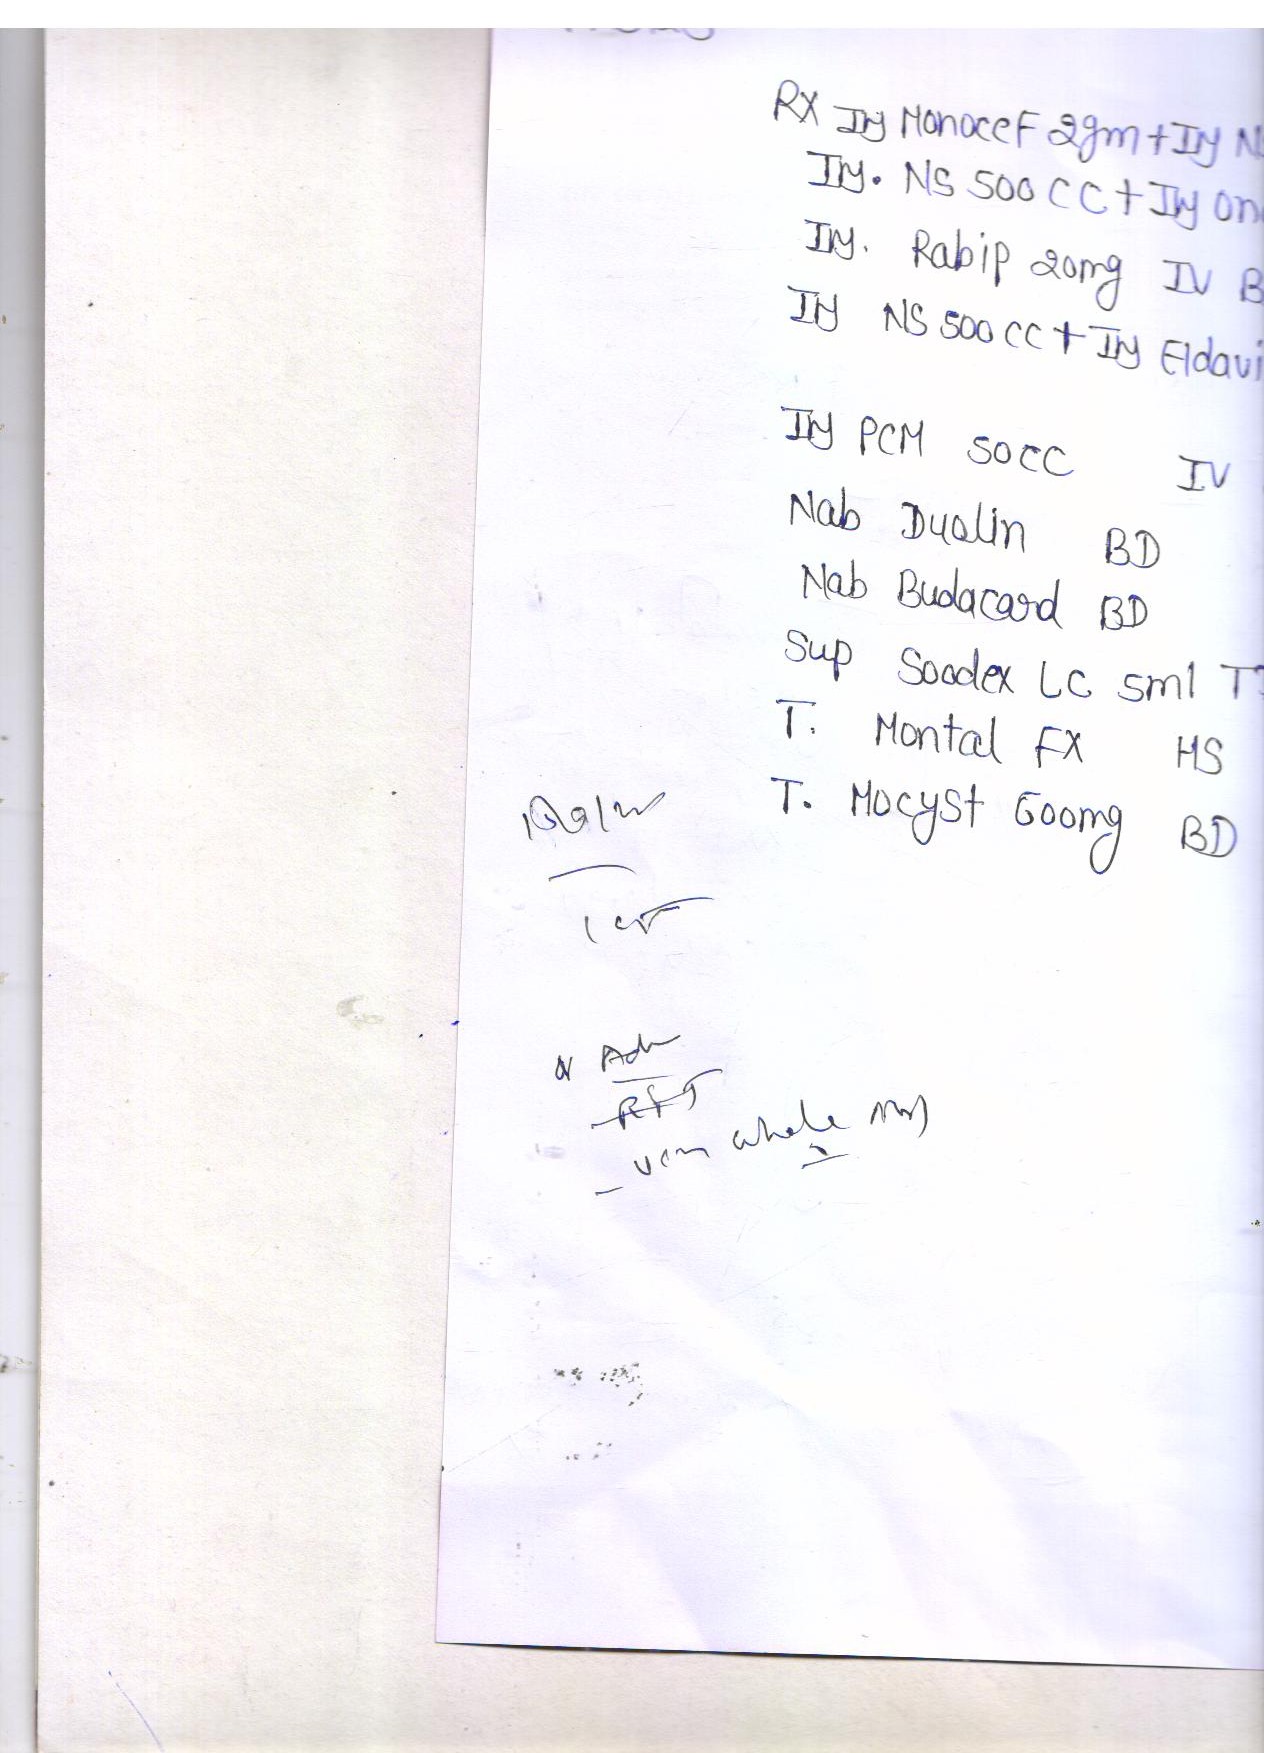 RX Inj Monocef 2gm + Inj NS
Inj. NS 500 CC + Inj On
Inj. Rabip 20mg IV B
Inj NS 500 CC + Inj Eldavi
Inj PCM 50CC IV
Nab Duolin BD
Nab Budacard BD
Sup Soodex LC 5ml T
T. Montal FX HS
T. Mocyst 600mg BD
Adv
RFT
whole